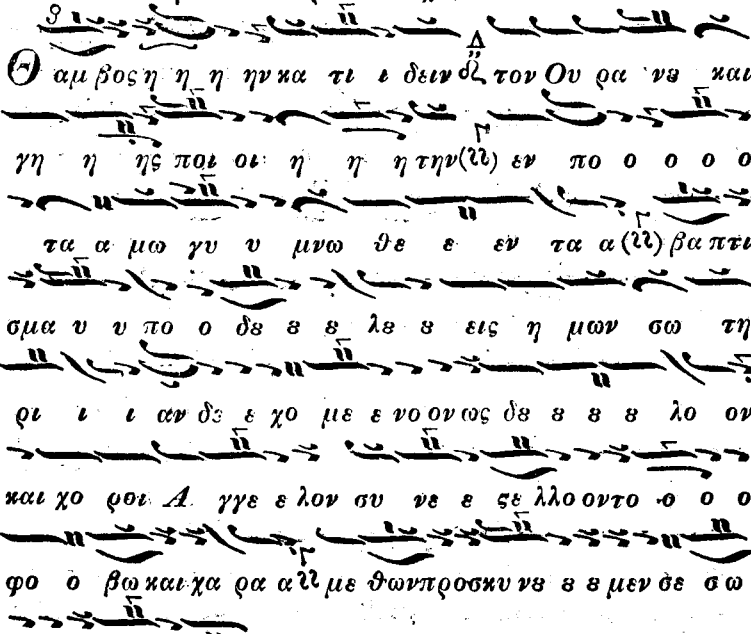 Θ αμ βος η η η ην κα τι ι δειν τον Ου ρα νȣ και
γη η ης ποι οι η η η την εν πο ο ο ο ο
τα α μω γυ υ μνω θε ε εν τα α βα πτι
σμα υ υ πο ο δȣ ȣ ȣ λȣ ȣ εις η μων σω τη
ρι ι ι αν δε ε χο με ε νο ον ως δȣ ȣ ȣ ȣ λο ον
και χο ροι Α γγε ε λον συ νε ε ςε λλο οντο ο ο ο
φο ο βω και χα ρα α με θων προσκυ νȣ ȣ ȣ μεν σε σω